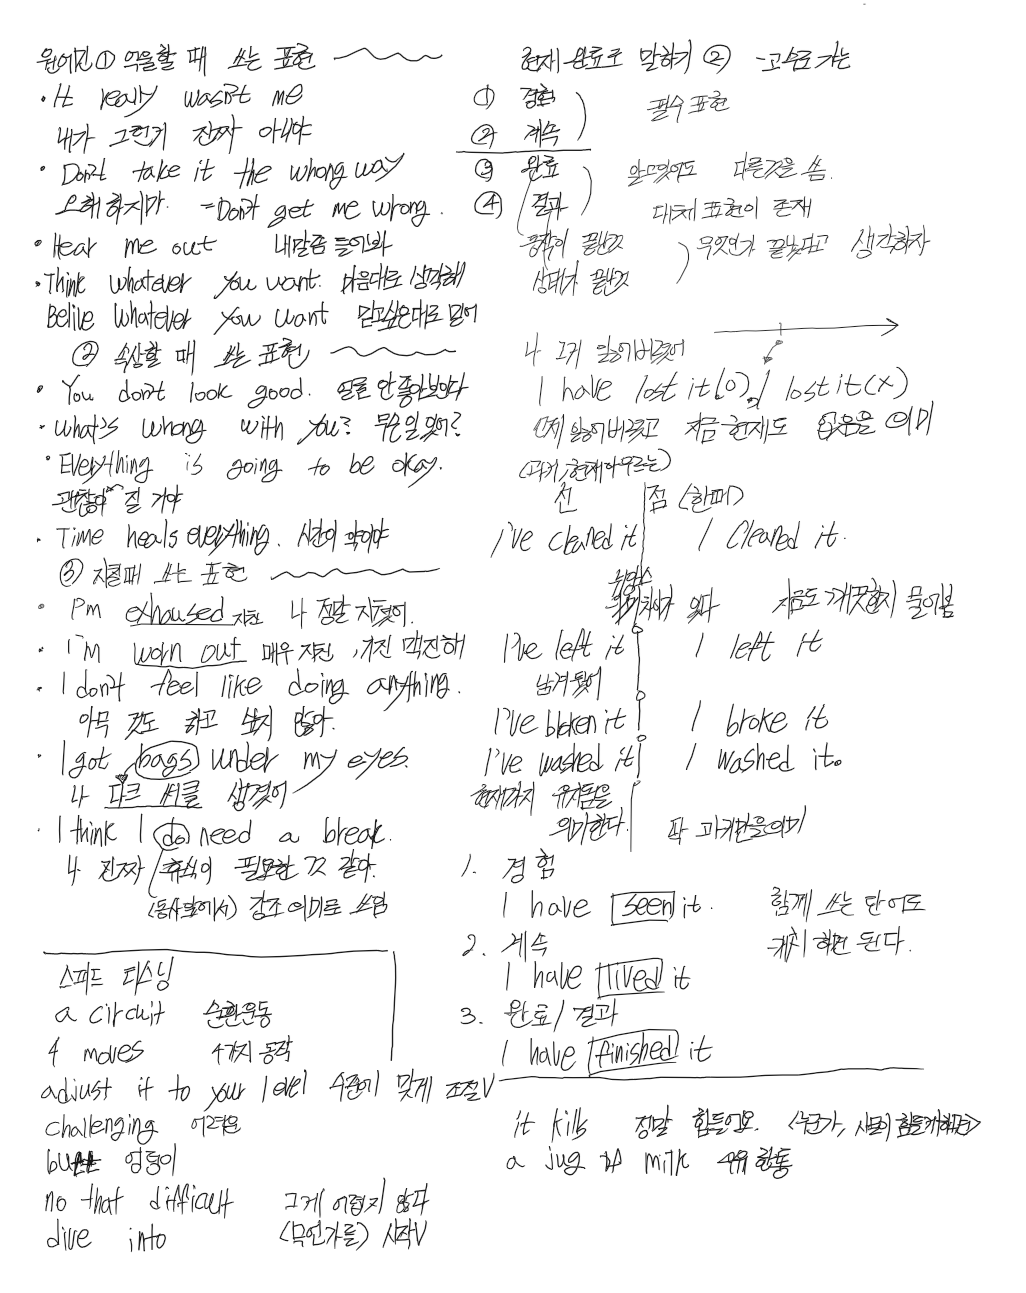 원어민 ① 억울할 때 쓰는 표현
• It really wasn't me
내가 그런게 진짜 아니야
• Don't take it the whong way
오해하지마. = Don't get me wrong.
• Hear me out 내말좀 들어봐
• Think whatever you want. 마음대로 생각해
Belive whatever you want 믿고싶은대로 믿어
② 속상할 때 쓰는 표현
• You don't look good. 별로 안좋아보인다
• What's wrong with you? 무슨일 있어?
• Everything is going to be okay.
괜찮아 질 거야
• Time heals everything. 시간이 약이야
③ 지칠때 쓰는 표현
• I'm exhaused 지친 나 정말 지쳤어.
• I'm worn out 매우 지친
• I don't feel like doing anything.
아무 것도 하고 싶지 않아.
• I got bags under my eyes.
나 다크 써클 생겼어
• I think I do need a break.
나 진짜 휴식이 필요한 것 같아.
(동사앞에서) 강조 의미로 쓰임
스피드 리스닝
a circuit 순환운동
4 moves 4가지 동작
adjust it to your level 수준에 맞게 조절V
challenging 어려운
엉덩이
no that difficult 그게 어렵지 않다
dive into (무언가를) 시작V
현재 완료로 말하기 ② - 고수로 가는
① 경험
필수 표현
② 계속
③ 완료 알고있어도 다른것을 씀.
④ 결과 대체 표현이 존재
동작이 끝난것
무엇인가 끝났다고 생각하자
상태가 끝난것
나 그거 잃어버렸어
I have lost it (O) / lost it (X)
언제 잃어버렸고 지금 현재도 없음을 의미
(과거, 현재 아우르는)
선 점 (한때)
I've cleaned it I cleaned it.
뉘앙스
의미차이가 있다 지금도 깨끗한지 물어봄
I've left it I left it
남겨뒀어
I've broken it I broke it
I've washed it I washed it.
현재까지 유지됨을
의미한다. 딱 과거만을 의미
1. 경험
I have seen it. 함께 쓰는 단어도
2. 계속 캐치 하면 된다.
I have lived it
3. 완료/결과
I have finished it
it kills 정말 힘들어요. (누군가, 사물이 힘들게해요)
a jug of milk 우유 한통